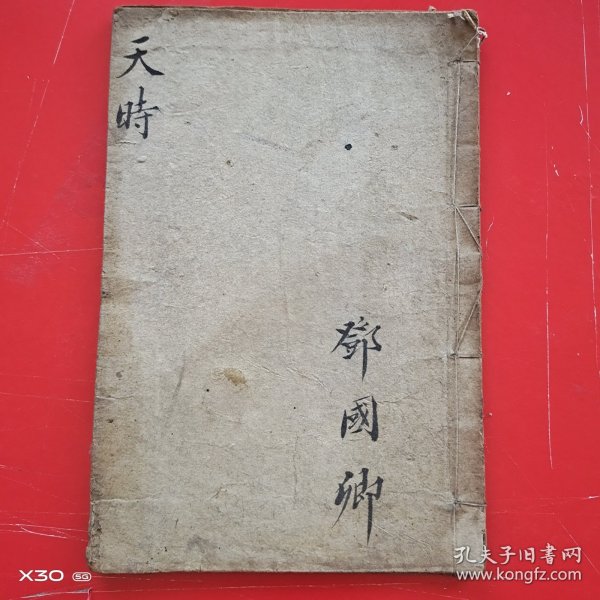 天時
鄧國卿
X30 5G
孔夫子旧書网
www.kongfz.com